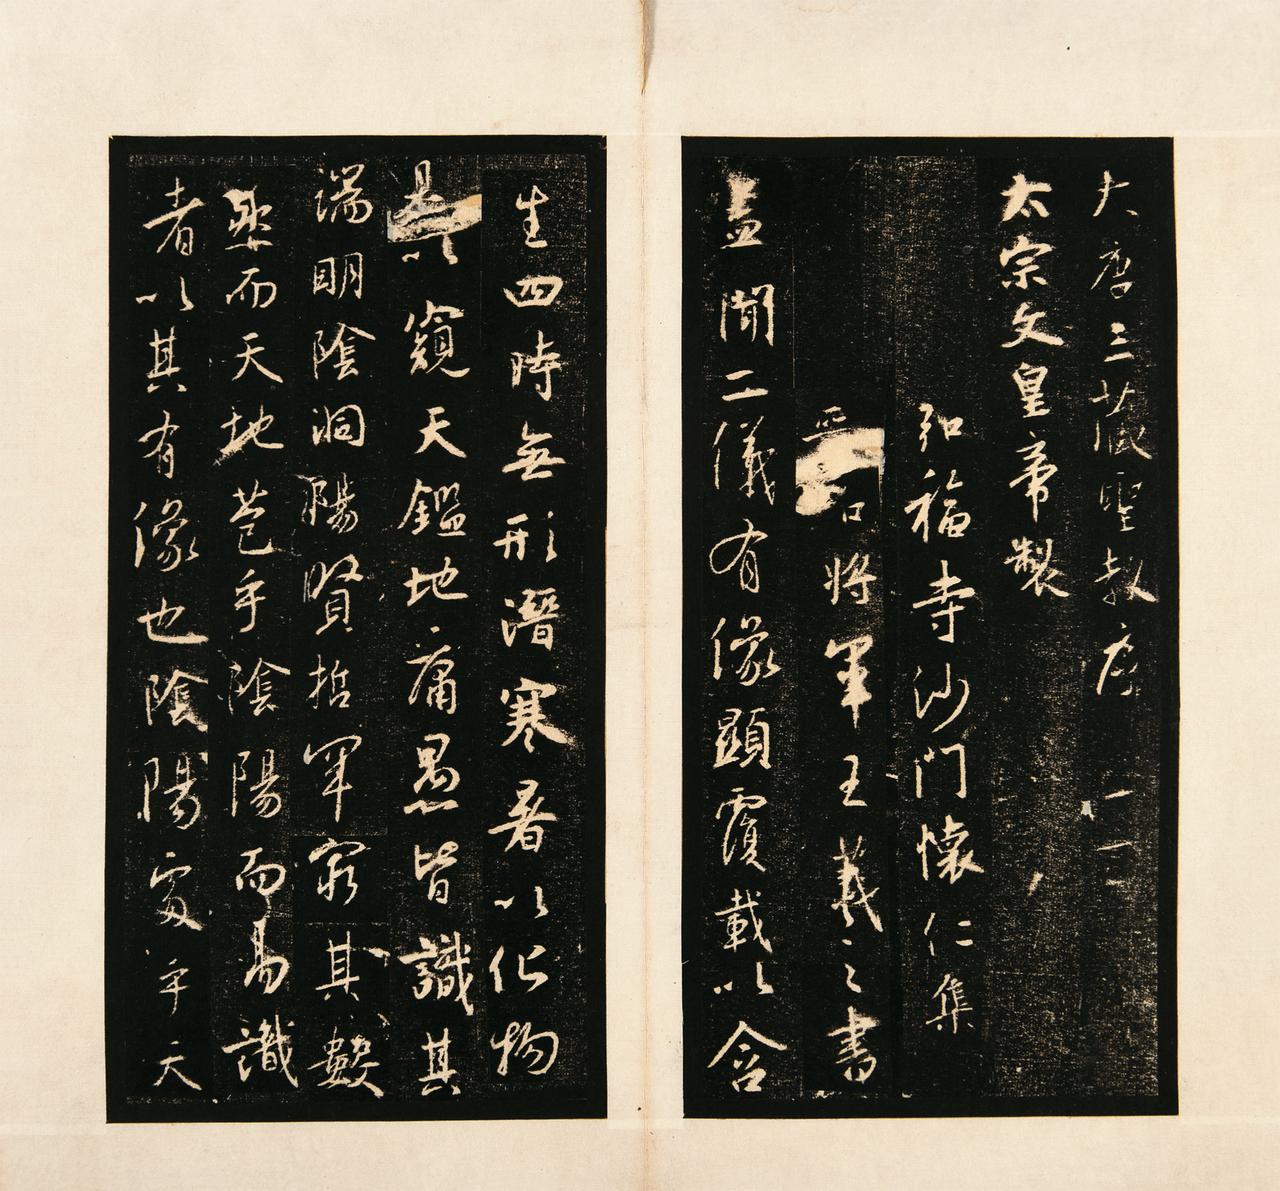 大唐三藏聖教序
太宗文皇帝製
弘福寺沙門懷仁集
晉右將軍王羲之書
蓋聞二儀有像顯覆載以含
生四時無形潛寒暑以化物
是以窺天鑑地庸愚皆識其
端明陰洞陽賢哲罕窮其數
然而天地苞乎陰陽而易識
者以其有像也陰陽處乎天